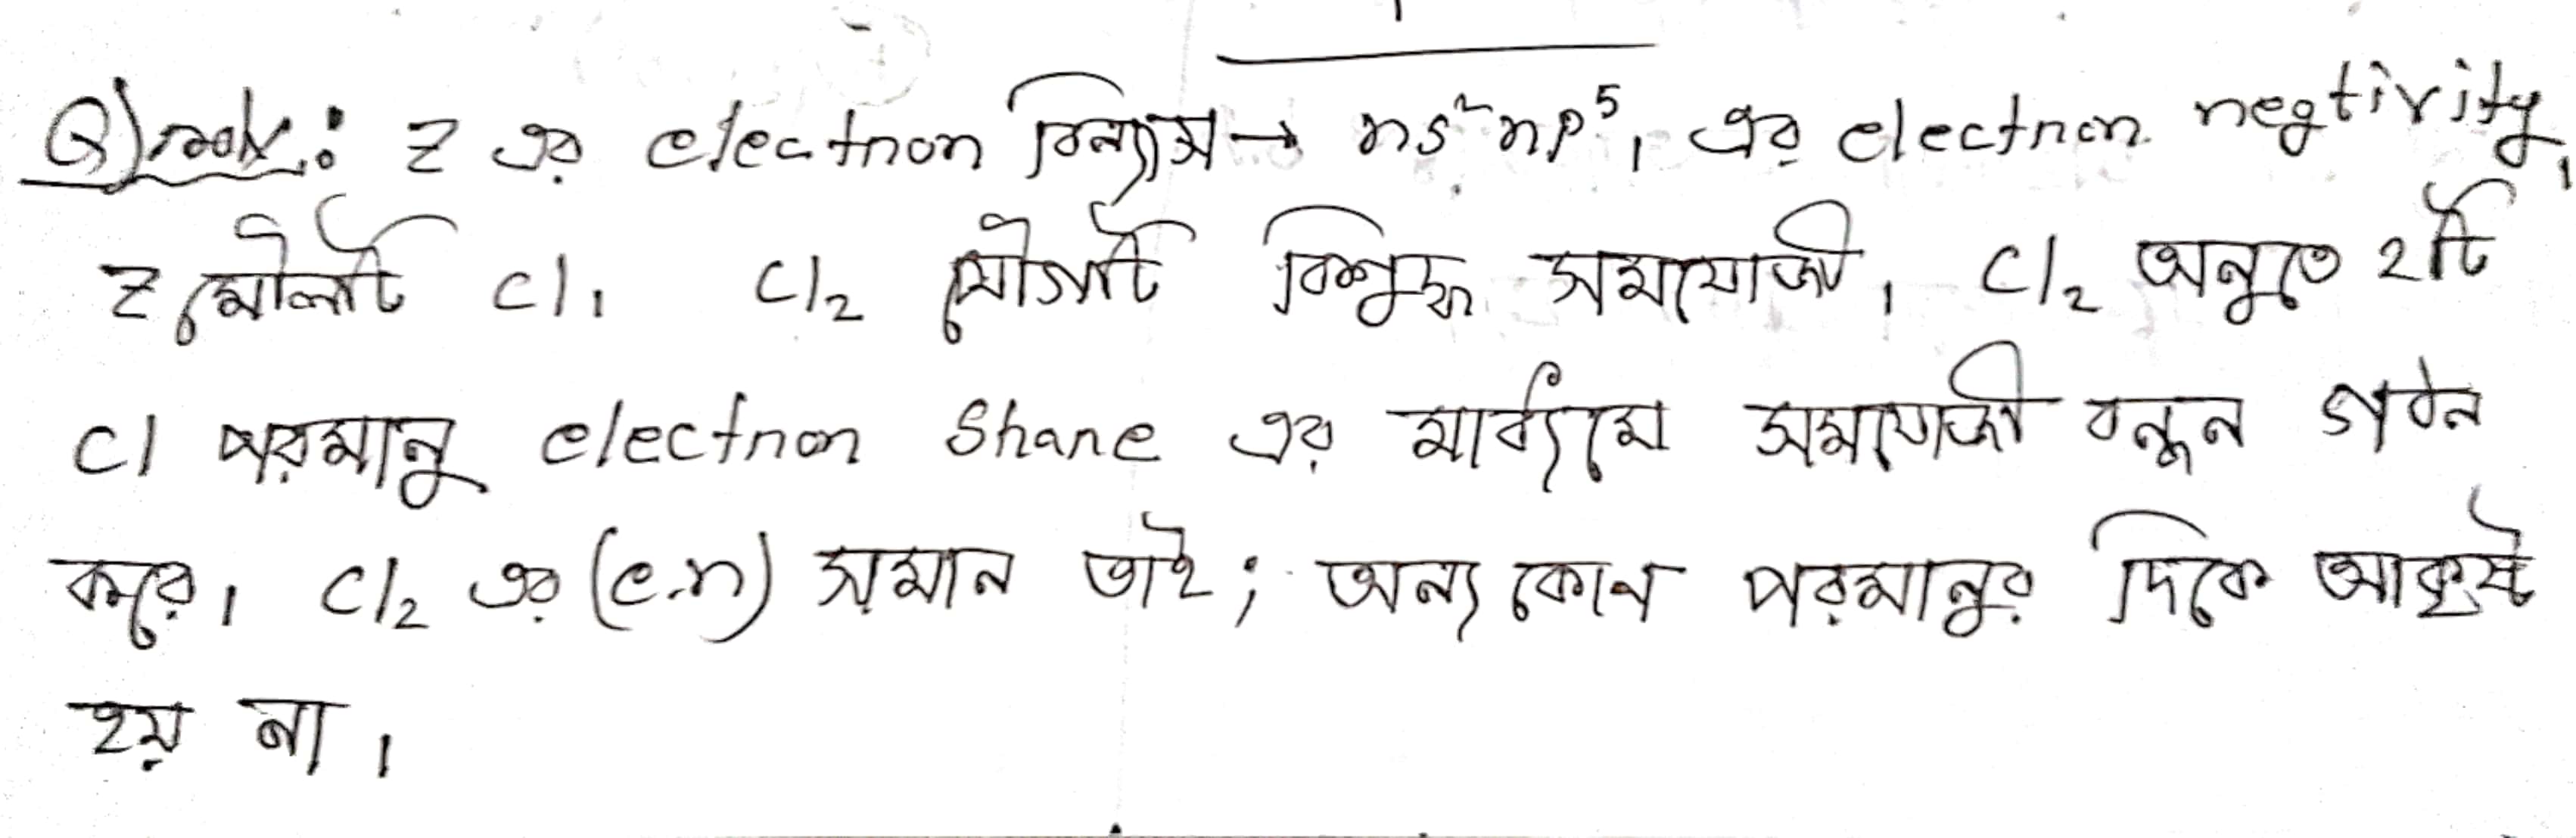 Q) z এর electron বিন্যাস → ns²np⁵, এর electron negtivity,
z মৌলটি Cl। Cl₂ যৌগটি বিশুদ্ধ সমযোজী। Cl₂ অনুতে ২টি
Cl পরমানু electron share এর মাধ্যমে সমযোজী বন্ধন গঠন
করে। Cl₂ এর (e.n) সমান তাই; অন্য কোন পরমানুর দিকে আকৃষ্ট
হয় না।